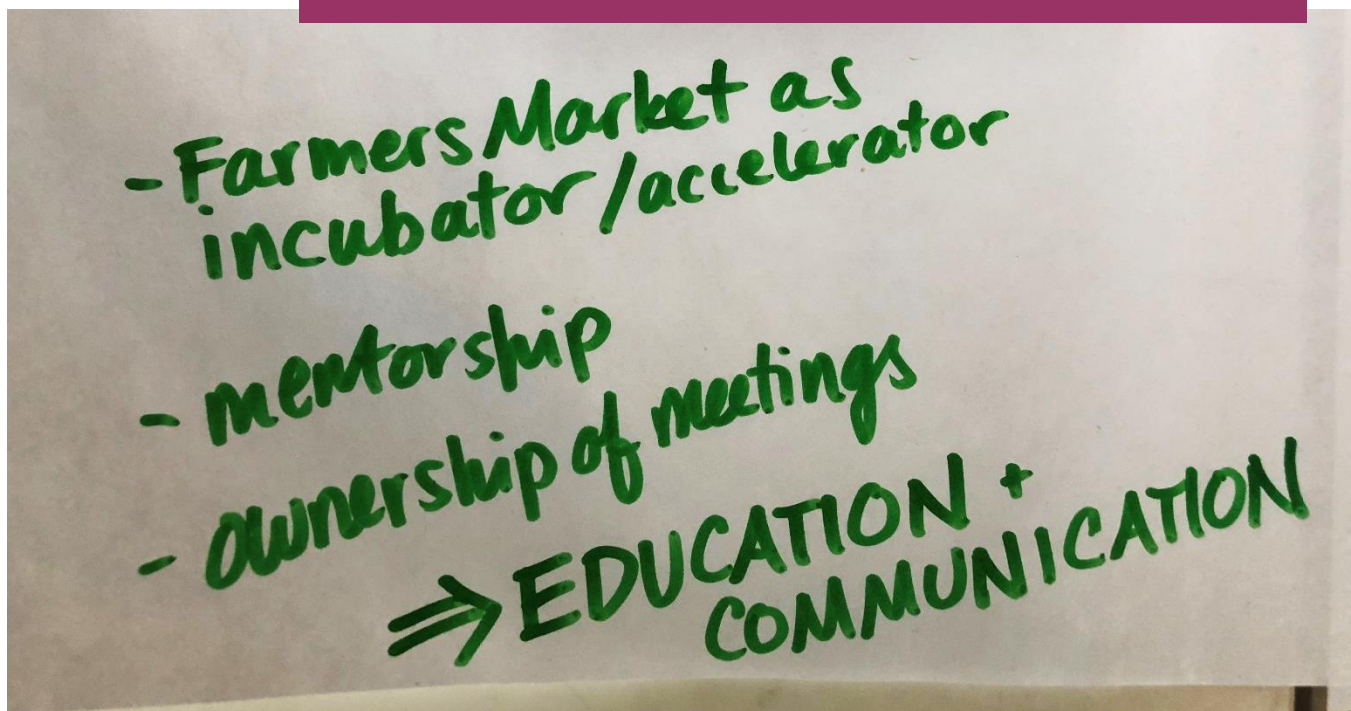 - Farmers Market as
incubator/accelerator
- mentorship
- ownership of meetings
⇒ EDUCATION +
COMMUNICATION